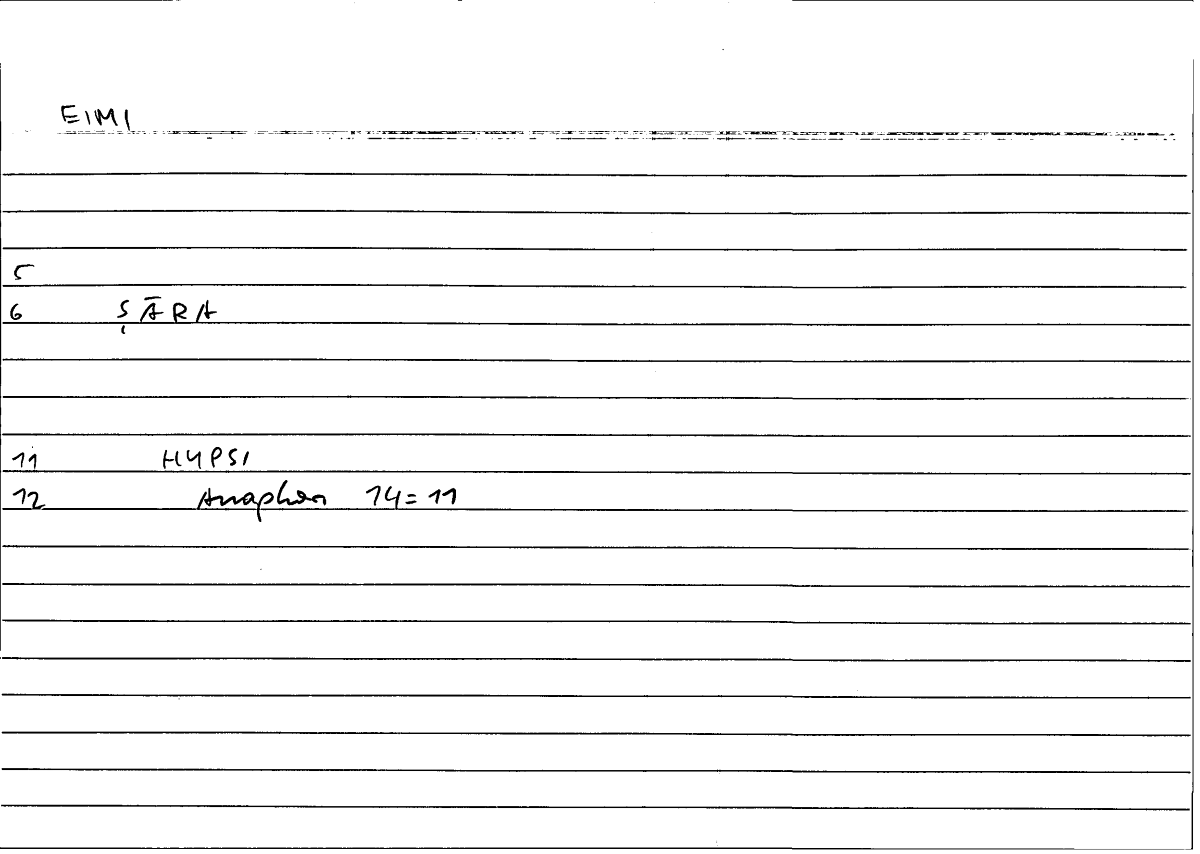 EIMI
5
6 ṢĀRA
11 HYPSI
12 Anaphon 14=11